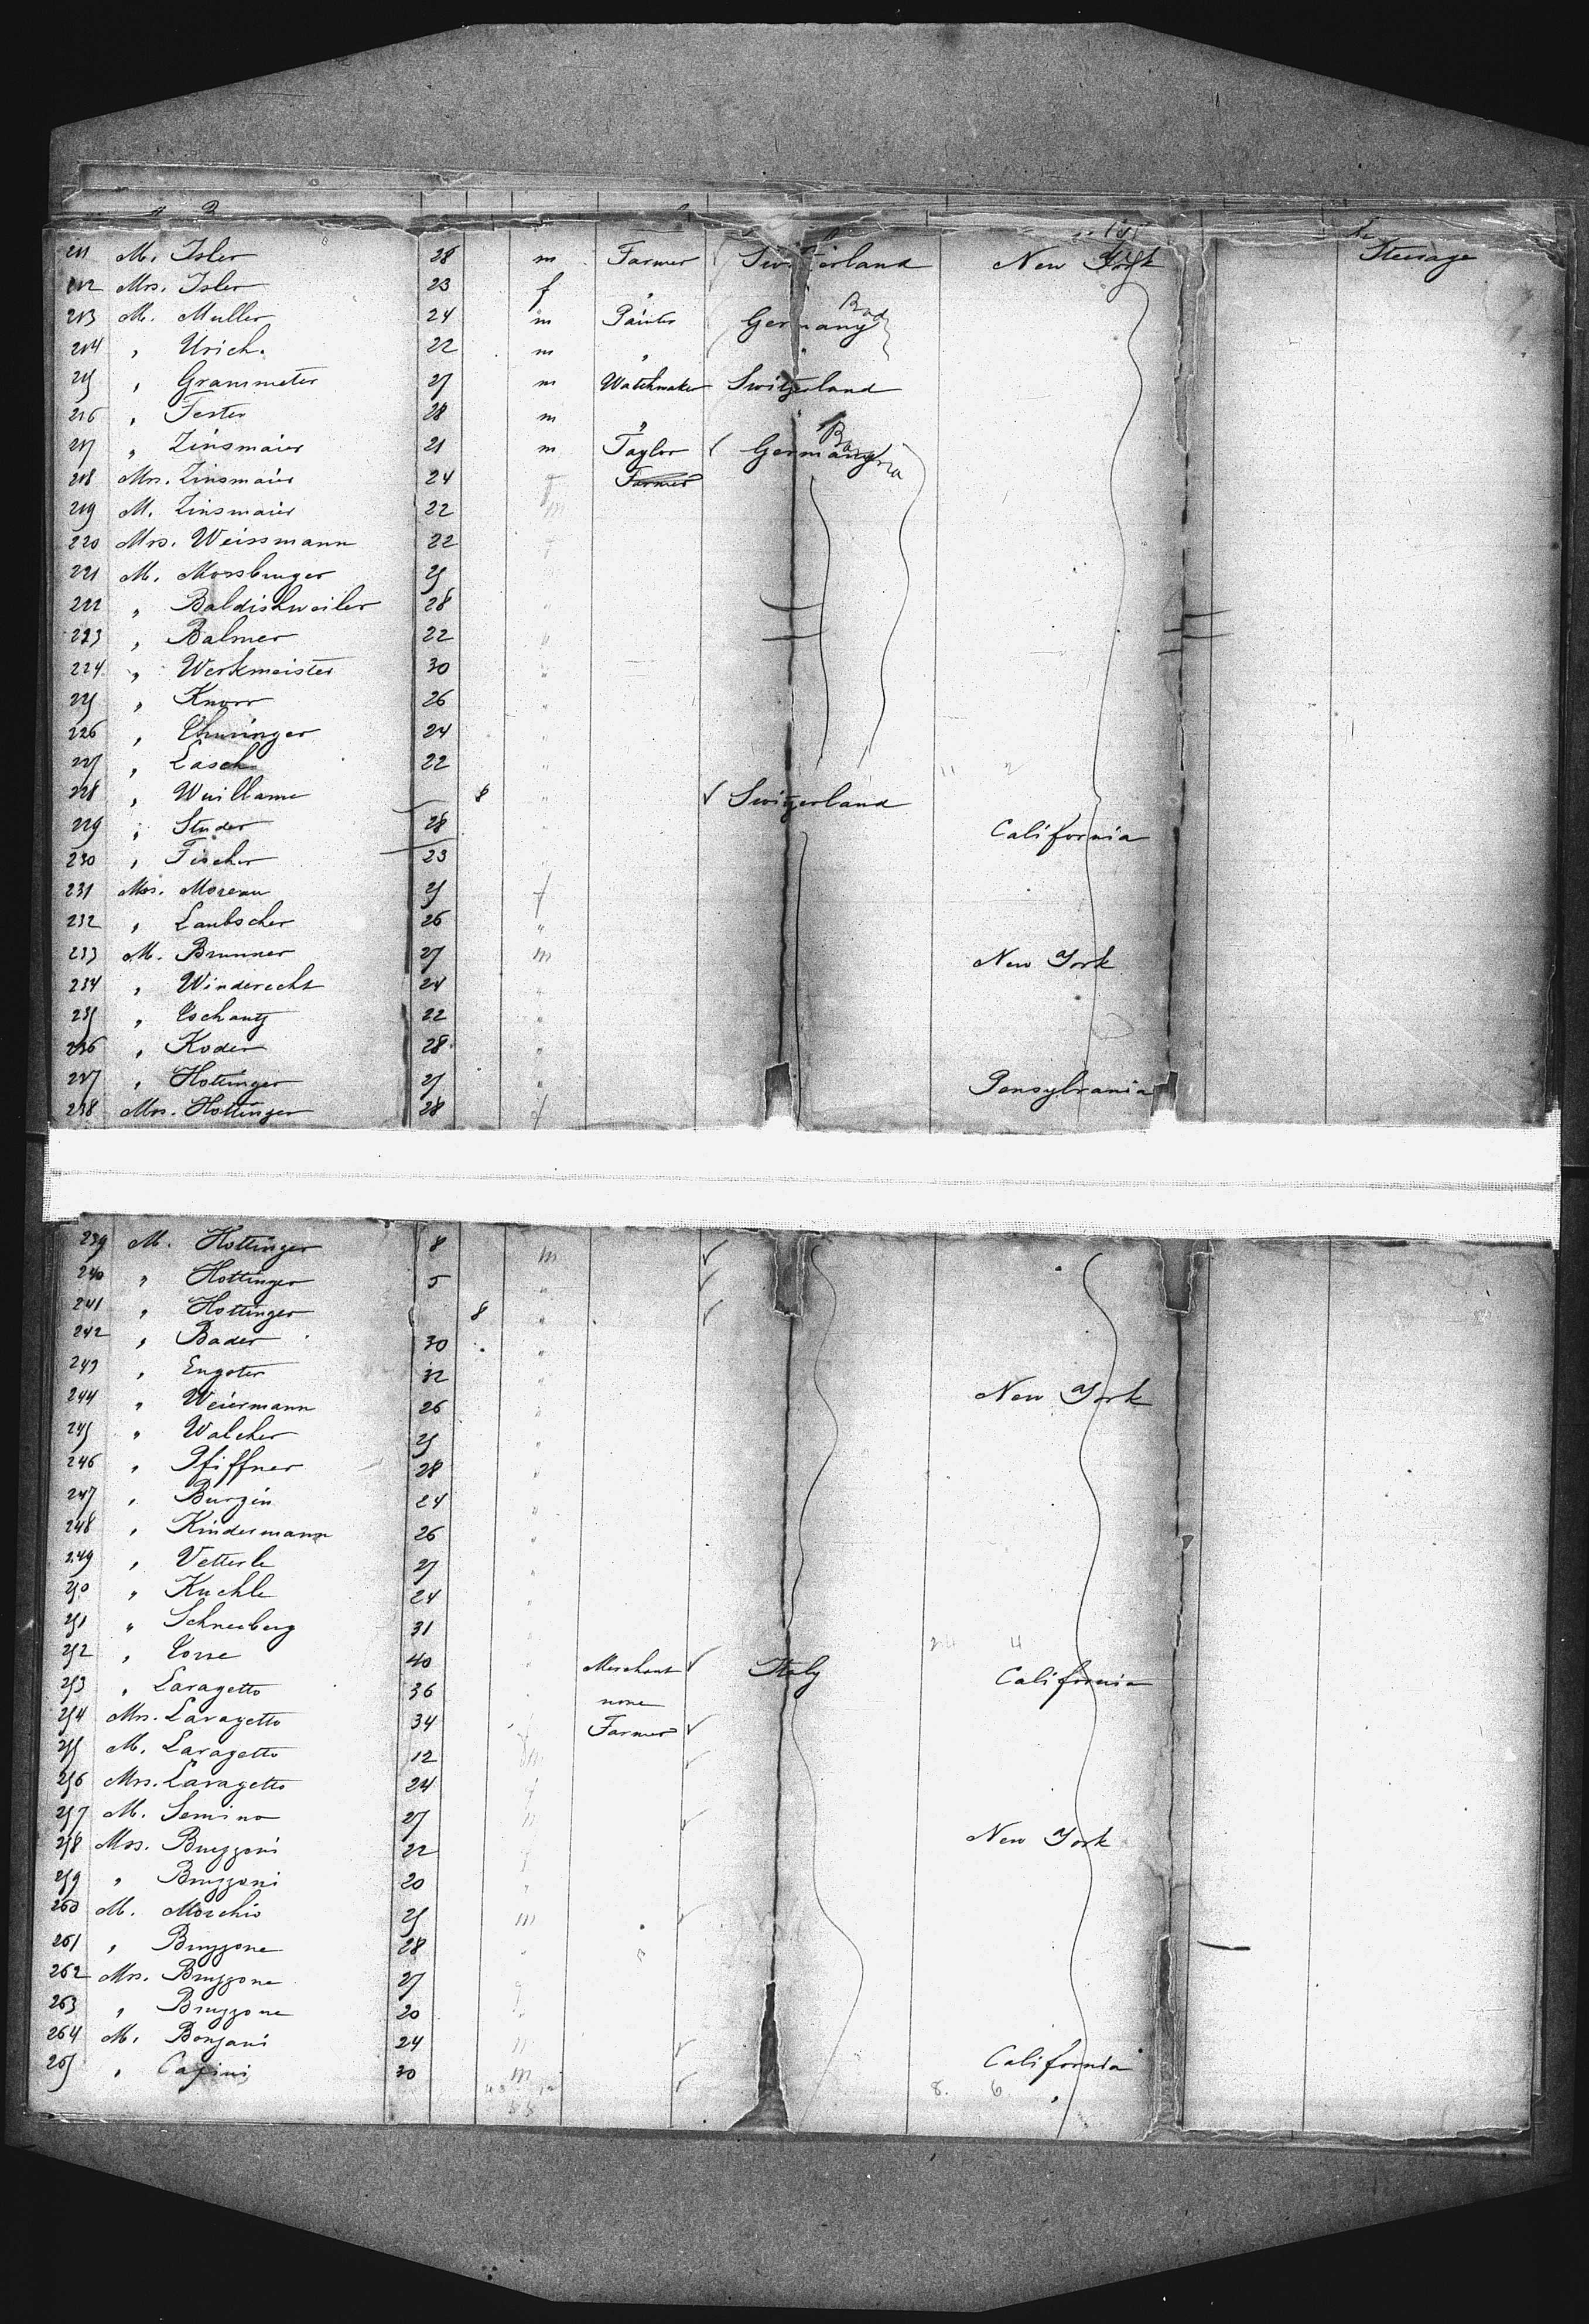 211 M. Isler 28 m Farmer Switzerland New York Steerage
212 Mrs. Isler 23 f "
213 M. Muller 24 m Painter Germany Bad
214 " Urich. 22 m "
215 " Grammeter 27 m Watchmaker Switzerland
216 " Tester 28 m "
217 " Zinsmaier 21 m Taylor Germany Bavaria
218 Mrs. Zinsmaier 24 f Farmer
219 M. Zinsmaier 22 m
220 Mrs. Weissmann 22 f
221 M. Morsbruger 25
222 " Baldishweiler 28 "
223 " Balmer 22 "
224 " Werkmeister 30 "
225 " Knorr 26 "
226 " Thuringer 24 "
227 " Lasch 22 "
228 " Wuillame 8 " Switzerland
229 " Studer 28 " California
230 " Fischer 23 "
231 Mrs. Moreau 25 f
232 " Laubscher 26 "
233 M. Brunner 27 m New York
234 " Winderecht 24 "
235 " Tschantz 22 "
236 " Koder 28 "
237 " Hottinger 27 " Pensylvania
238 Mrs. Hottinger 28 f
239 M. Hottinger 8 m
240 " Hottinger 5 "
241 " Hottinger 8 "
242 " Bader 30 "
243 " Engster 32 "
244 " Weiermann 26 " New York
245 " Walcher 25 "
246 " Pfiffner 28 "
247 " Burgin 24 "
248 " Kindermann 26 "
249 " Vetterle 27 "
250 " Kuchle 24 "
251 " Schneeberg 31 "
252 " Torre 40 " Merchant Italy California
253 " Lavagetto 36 " none
254 Mrs. Lavagetto 34 f Farmer
255 M. Lavagetto 12 m
256 Mrs. Lavagetto 24 f
257 M. Semino 27 m New York
258 Mrs. Bruzzoni 22 f
259 " Bruzzoni 20 "
260 M. Morchio 25 m
261 " Bruzzone 28 "
262 Mrs. Bruzzone 27 f
263 " Bruzzone 20 "
264 M. Bonzani 24 m California
265 " Cafini 30 m "